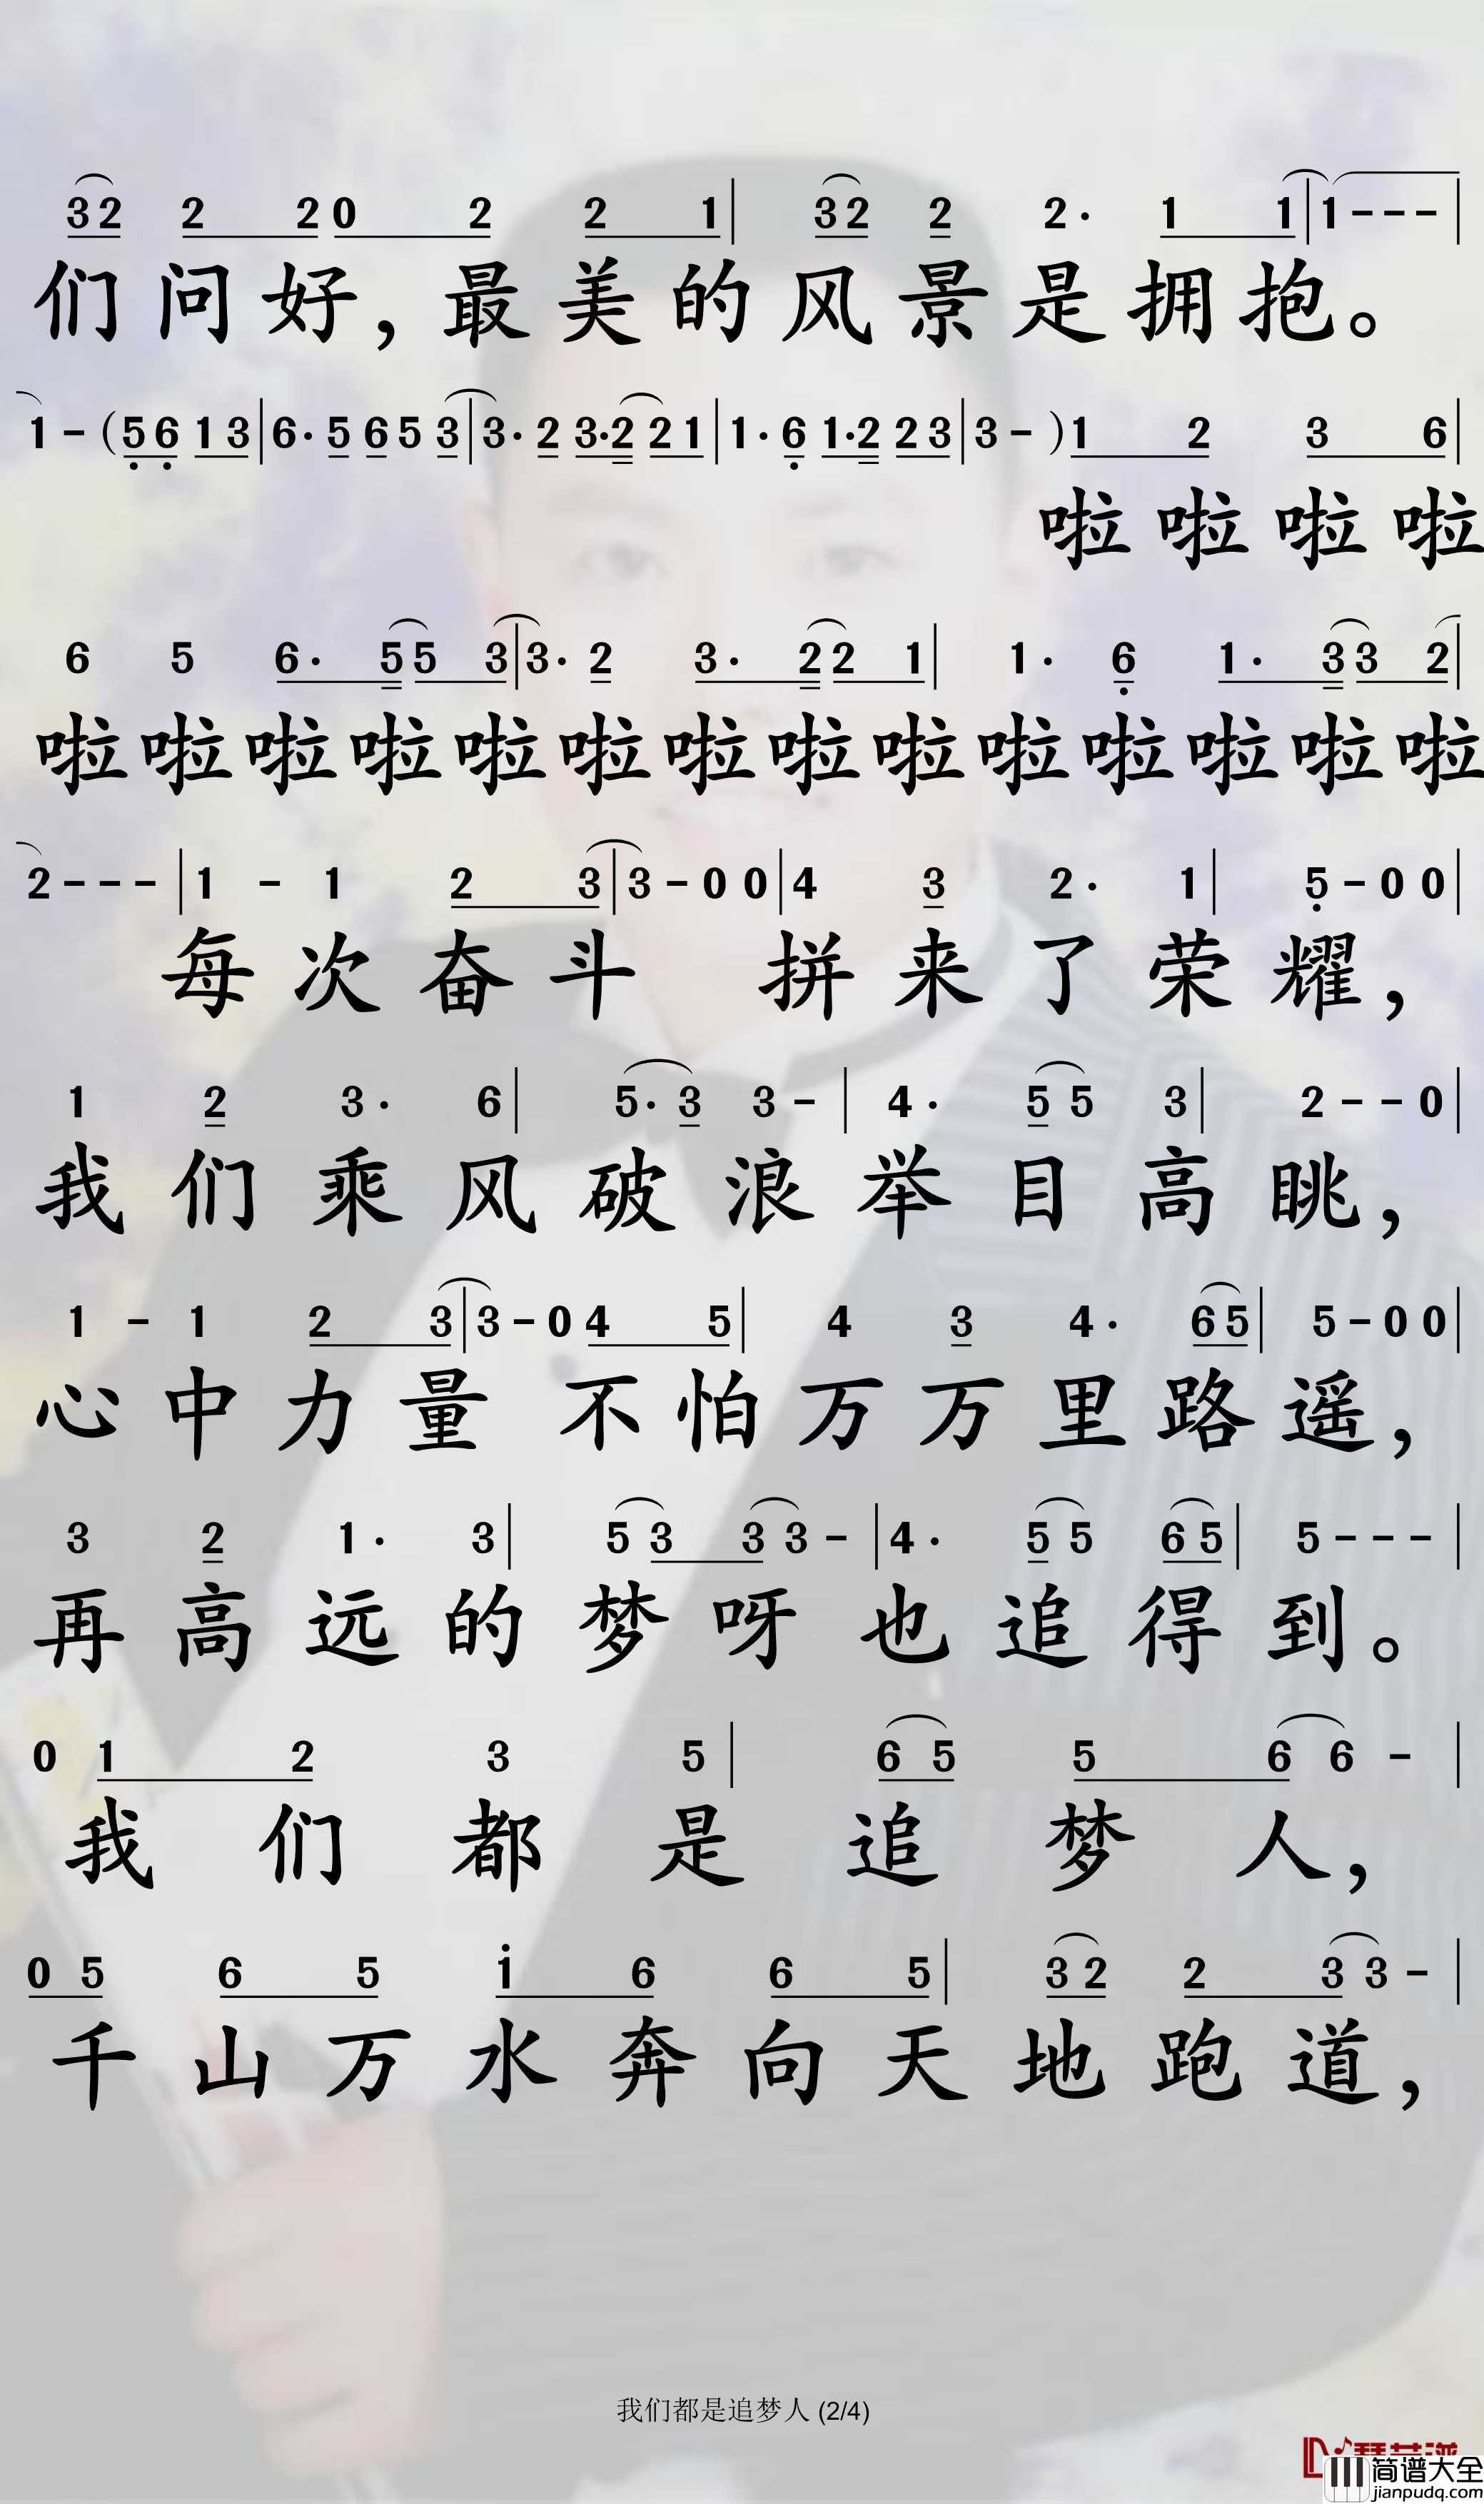 32 2 2 0 2 2 1 | 32 2 2· 1 1 | 1 - - - |
们问好，最美的风景是拥抱。
1 - (5 6 1 3 | 6· 5 6 5 3 | 3· 2 3· 2 2 1 | 1· 6 1· 2 2 3 | 3 - ) 1 2 3 6 |
啦啦啦啦
6 5 6· 5 5 3 | 3· 2 3· 2 2 1 | 1· 6 1· 3 3 2 |
啦啦啦啦啦啦啦啦啦啦啦啦啦啦
2 - - - | 1 - 1 2 3 | 3 - 0 0 | 4 3 2· 1 | 5 - 0 0 |
每次奋斗 拼来了荣耀，
1 2 3· 6 | 5· 3 3 - | 4· 5 5 3 | 2 - - 0 |
我们乘风破浪举目高眺，
1 - 1 2 3 | 3 - 0 4 5 | 4 3 4· 6 5 | 5 - 0 0 |
心中力量 不怕万万里路遥，
3 2 1· 3 | 5 3 3 3 - | 4· 5 5 6 5 | 5 - - - |
再高远的梦呀也追得到。
0 1 2 3 5 | 6 5 5 6 6 - |
我们都是追梦人，
0 5 6 5 i 6 6 5 | 3 2 2 3 3 - |
千山万水奔向天地跑道，
我们都是追梦人 (2/4)
简谱大全
jianpudq.com